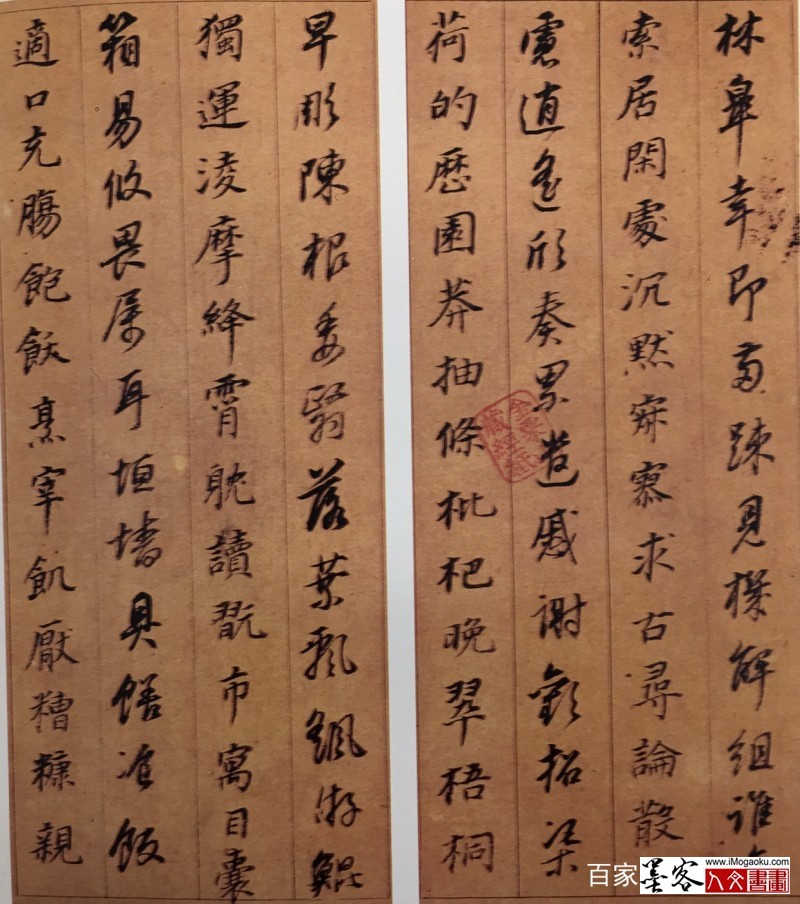 林皋幸即兩疎見機解組誰
索居閑處沉默寂寥求古尋論散
慮逍遙欣奏累遣慼謝歡招渠
荷的歷園莽抽條枇杷晚翠梧桐
早彫陳根委翳落葉飄颻游鯤
獨運淩摩絳霄耽讀翫市寓目囊
箱易攸畏屬耳垣墻具饍湌飯
適口充腸飽飫烹宰飢厭糟糠親
金粟山
藏經紙
百家 墨客
www.iMogaoku.com
人文書畫